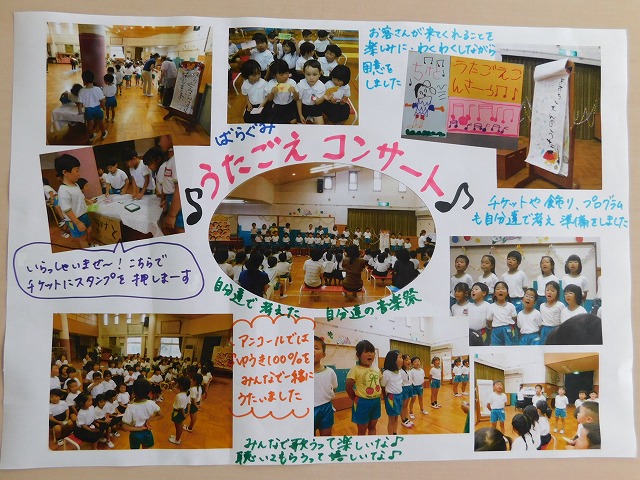 お客さんが来てくれることを
楽しみに、わくわくしながら
用意を
しました
うたごえコ
んさーと♪♪♪
ばらぐみ
うたごえ コンサート
チケットや飾り、プログラム
も自分達で考え 準備をしました
いらっしゃいませ〜！こちらで
チケットにスタンプを押しまーす
自分達で考えた
自分達の音楽祭
アンコールでは
ゆうき100%を
みんなで一緒に
うたいました
みんなで歌うって楽しいな♪
聴いてもらうって嬉しいな♪